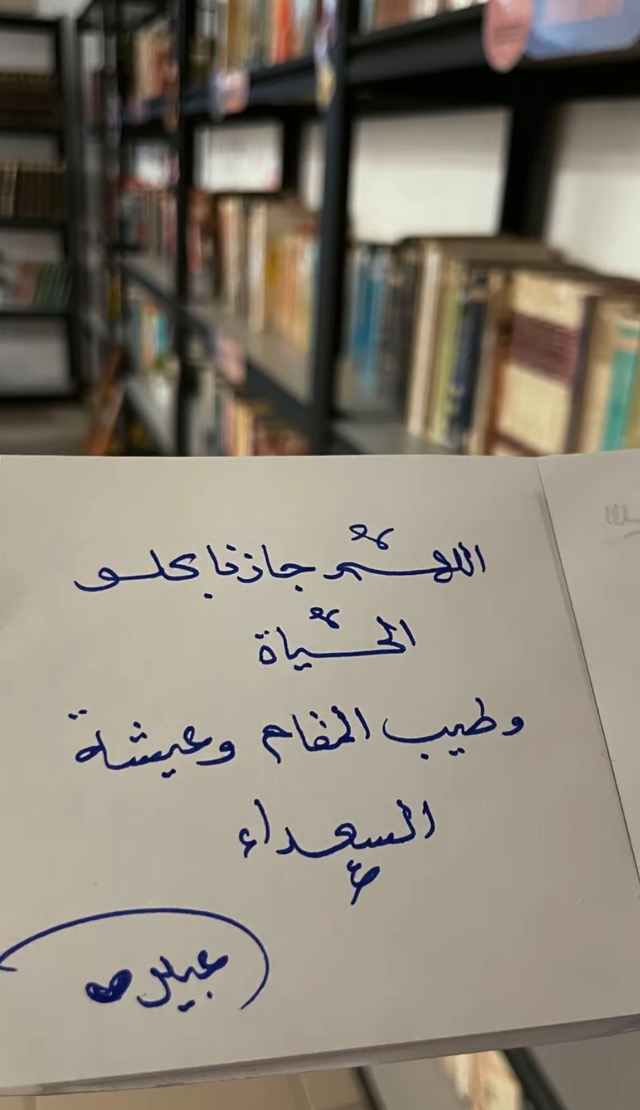 اللهم جازنا بحلو
الحياة
وطيب المقام وعيشة
السعداء
عبير